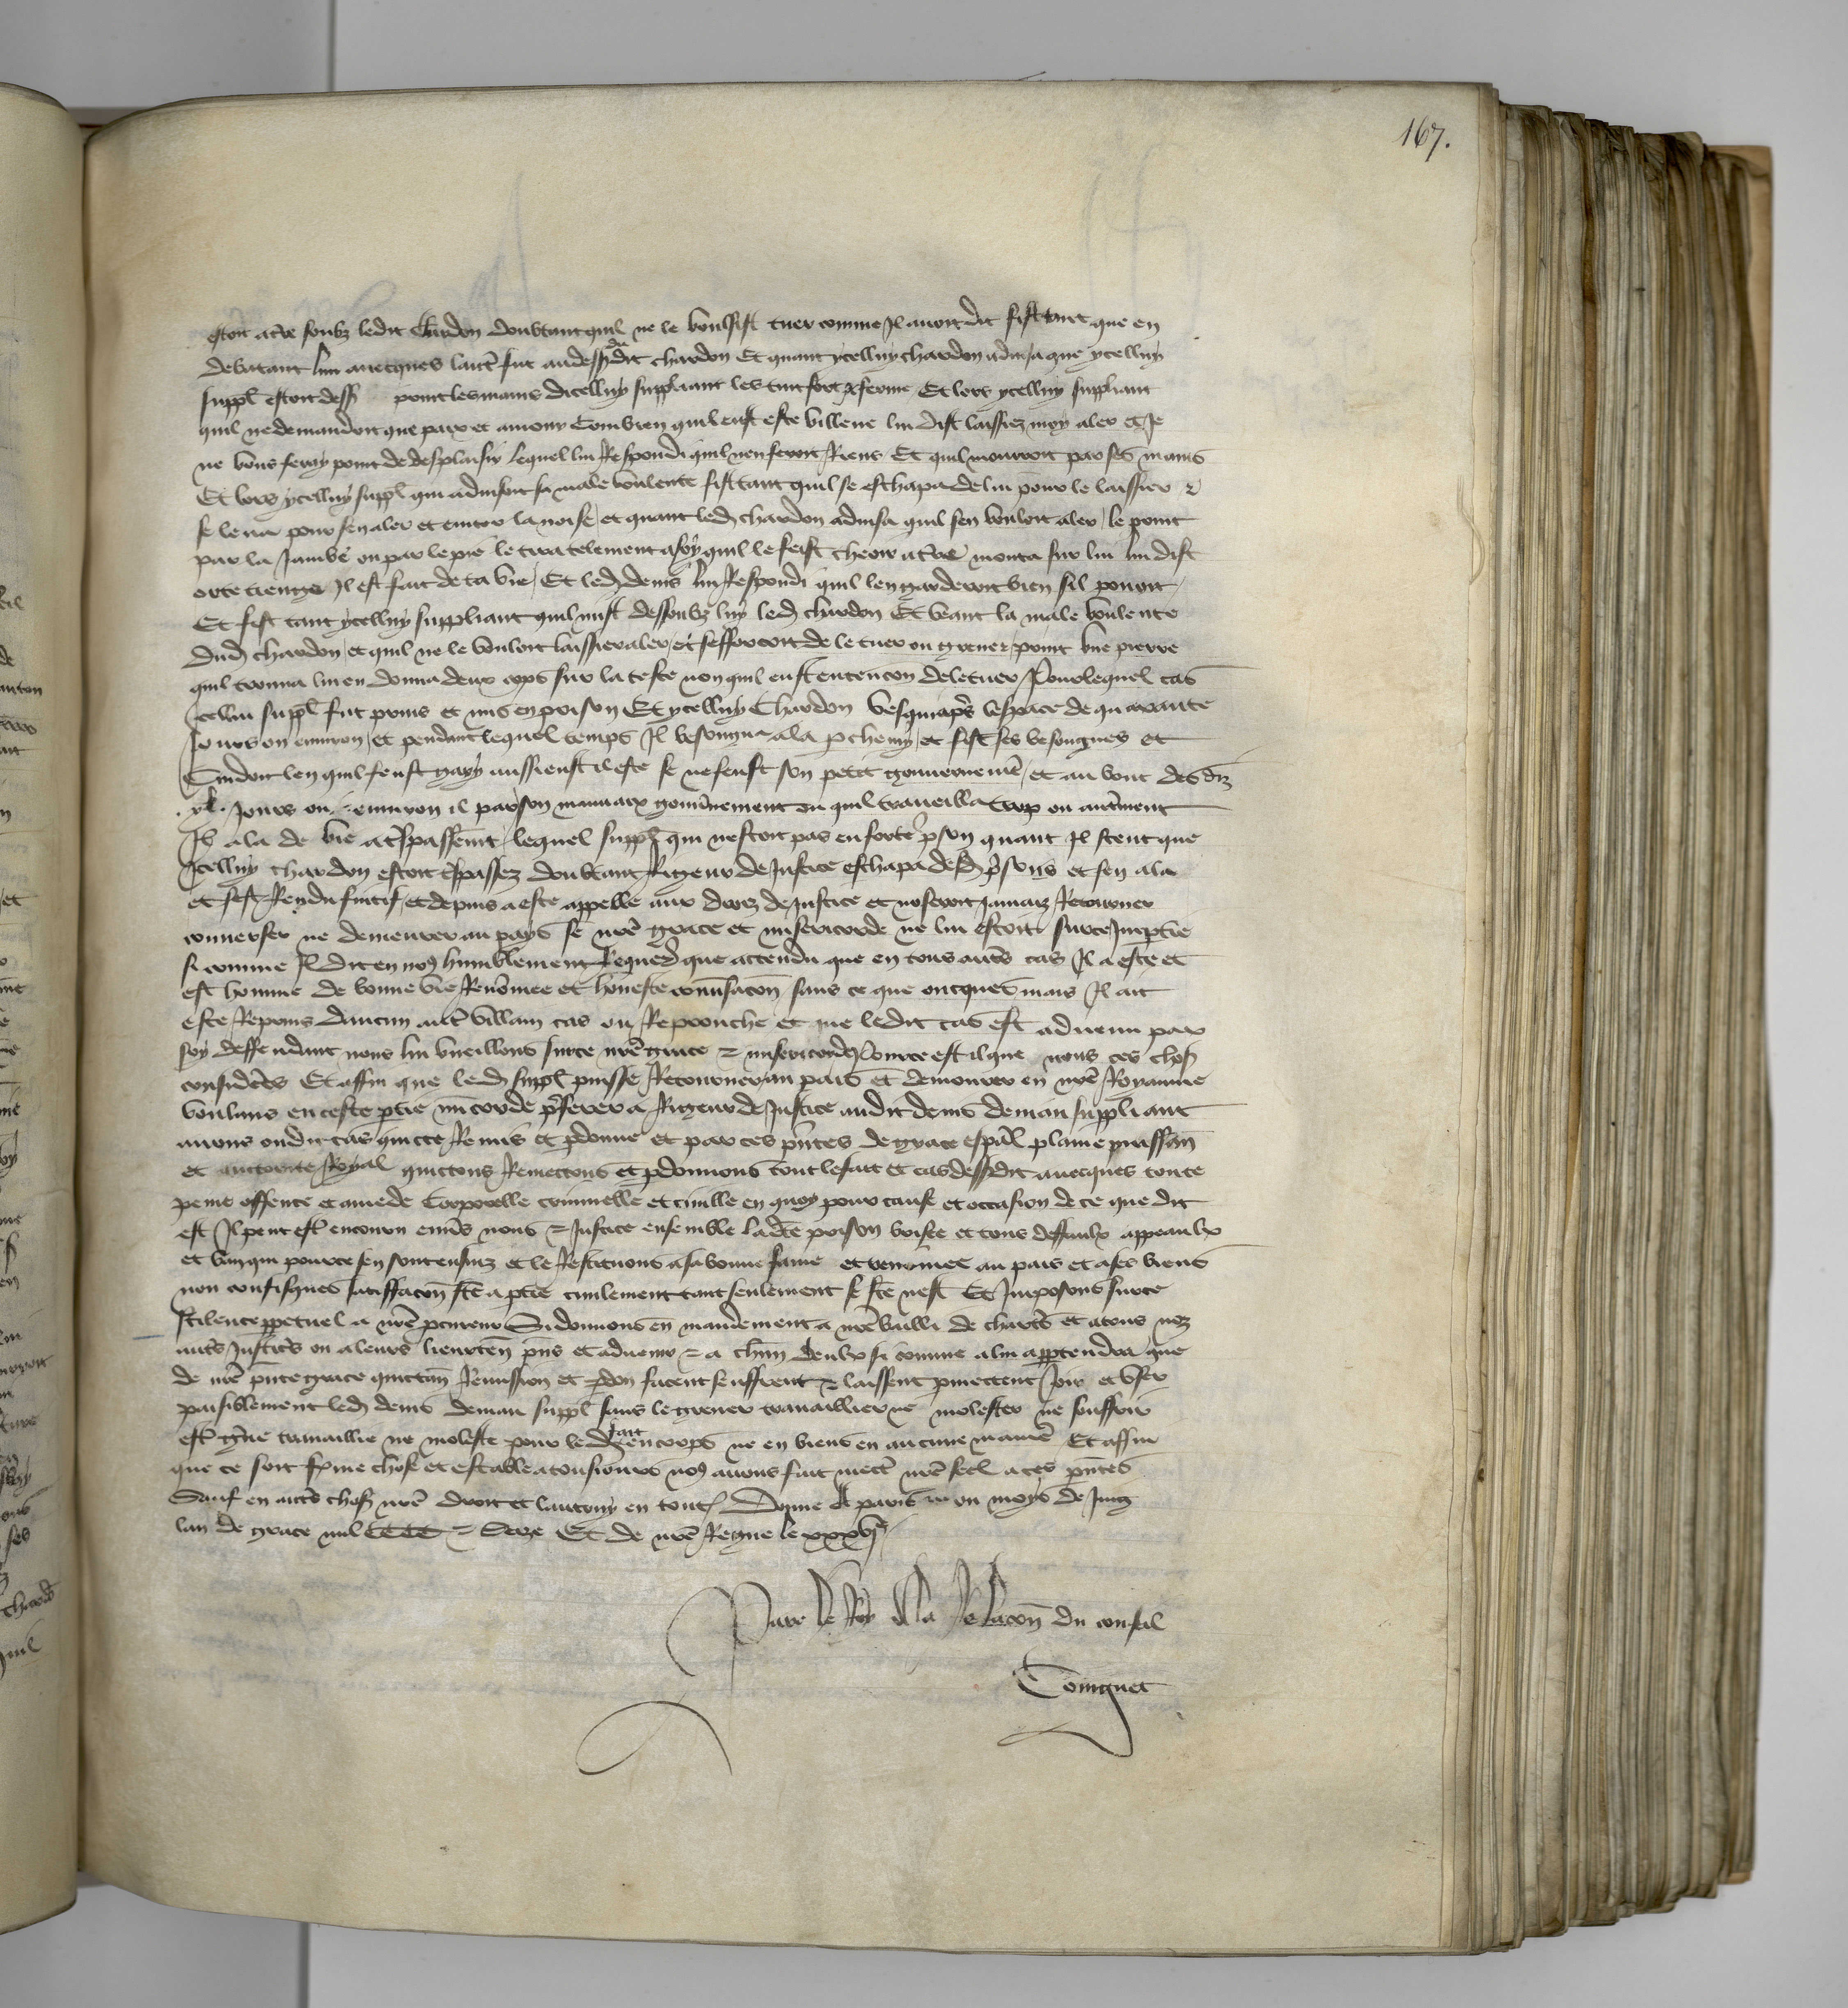 167.
estoit atre soubz ledit Chardon doubtant quil ne le voulsist tuer comme Il auoit dit fist tant que en
debatant lun auecques lautre fut au dess du dit chardon Et quant ycelluy chardon aduisa que ycelluy
suppl estoit dess print les mains dicelluy suppliant les tint fort & ferme Et lors ycelluy suppliant
quil ne demandoit que paix et amour Combien quil eust este villene lui dist laissiez moy aler et Je
ne vous feray point de desplaisir lequel lui Respondi quil nen feroit Riens Et quil mourroit par ses mains
Et lors ycelluy suppl qui aduisoit sa male voulente fist tant quil se eschapa de lui pour le laissier &
se leua pour sen aler et euiter la noise et quant led chardon aduisa quil sen vouloit aler le print
par la Jambe ou par le pie le tira telement a soy quil le feist cheoir atre monta sur lui lui dist
orte tienge Il est fait de ta vie Et led denis lui Respondi quil len garderoit bien sil pouoit
Et fist tant ycelluy suppliant quil mist dessoubz luy led chardon Et veant la male voulente
dud chardon et quil ne le vouloit laissier aler et sefforcoit de le tuer ou greuer print une pierre
quil trouua lui en donna deux cops sur la teste non quil eust entencon de le tuer Pour lequel cas
Icellui suppl fut prins et mis en prison Et ycelluy Chardon vesqui apres lespace de quarante
Jours ou enuiron et pendant lequel temps Il besongna ala p chemin et fist ses besongnes et
Cuidoit len quil feust gary aussi eust il este se ne feust son petit gouuernement et au bout des diz
xl. Jours ou enuiron il par son mauuaix gouuernement ou quil traueilla trop ou autrement
Il ala de vie a trespassement lequel suppl qui nestoit pas en forte prison quant Il scent que
Icelluy chardon estoit trespassez doubtant Rigeur de Justice eschapa desd prisons et sen ala
et sest Rendu fuitif et depuis a este appelle aux droiz de Justice et noseroit Jamaiz Retourner
conuerser ne demeurer au pays se nre grace et misericorde ne lui estoit sur ce Impartie
si comme Il dit en nous humblement Requerant que actendu que en tous autres cas Il a este et
est homme de bonne vie Renommee et honeste conuersacon sans ce que oncques mais Il ait
este Reprins daucun autre villain cas ou Reprouche et que ledit cas est aduenu par
soy deffendant nous lui vueillons sur ce nre grace & misericorde Pource est il que nous ces choses
considerees Et affin que led suppl puisse Retourner au pais et demourer en nre Royaume
voulans en ceste partie misericorde preferer a Rigeur de Justice audit denis deman suppliant
auons ou dit cas quicte Remis et pardonne et par ces pntes de grace espal plaine puissan
et auctorite Royal quictons Remectons et pardonnons tout le fait et cas dessusdit auecques toute
peine offence et amede Corporelle criminelle et ciuille en quoy pour cause et occasion de ce que dit
est Il peut est encouru enuers nous & Justice ensemble ladte prison brisee et tous deffaulx appeaulx
et ban qui pource sen sont ensuiz et le Restituons a sa bonne fame et renomee au pais et a ses biens
non confisques satisfacon fte a partie ciuilement tant seulement se fte nest Et Imposons sur ce
silence perpetuel a nre procureur Si donnons en mandement a nre bailli de chartres et a tous noz
autres Justiciers ou a leurs lieuxten pns et aduenir & a chun deulx si comme a lui appartendra que
de nre pnte grace quictan Remission et pardon facent seuffrent & laissent pmectent Joir et user
paisiblement led denis deman suppl sans le greuer trauaillier ne molester ne souffrir
est greue trauaillie ne moleste pour led fait en corps ne en biens en aucune maniere Et affin
que ce soit ferme chose et estable a tousiours nous auons fait mectre nre seel a ces pntes
Sauf en autres choses nre droit et lautruy en toutes Donne A paris ou moys de Juing
lan de grace mil CCCC & seize Et de nre Regne le xxxvje
Par le Roy A la Relacon du conseil
Toinquet